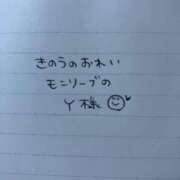 きのうのおれい
モンリーブの
Y様